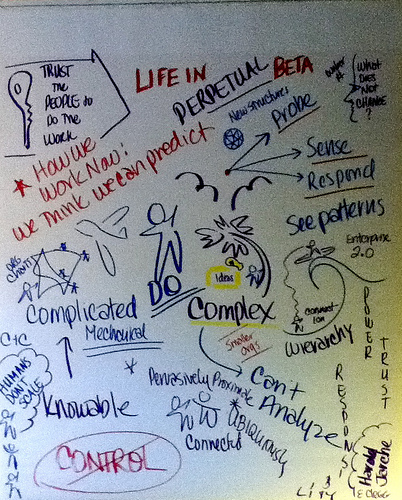 TRUST
the
PEOPLE to
DO THE
WORK
LIFE IN
PERPETUAL BETA
WHAT
DOES
NOT
CHANGE
?
New structures
Probe
Sense
Respond
See patterns
How we
work now:
we think we can predict
Enterprise
2.0
ORG
CHARTS
DO
Ideas
Complicated
Mechanical
Complex
Connect
ion
Wierarchy
Smaller
orgs
POWER
TRUST
RESPONSIBILITY
C+C
HUMANS
DON'T
SCALE
Knowable
Pervasively Proximate
Ubiquitously
Connected
Can't
Analyze
CONTROL
Harold
Jarche